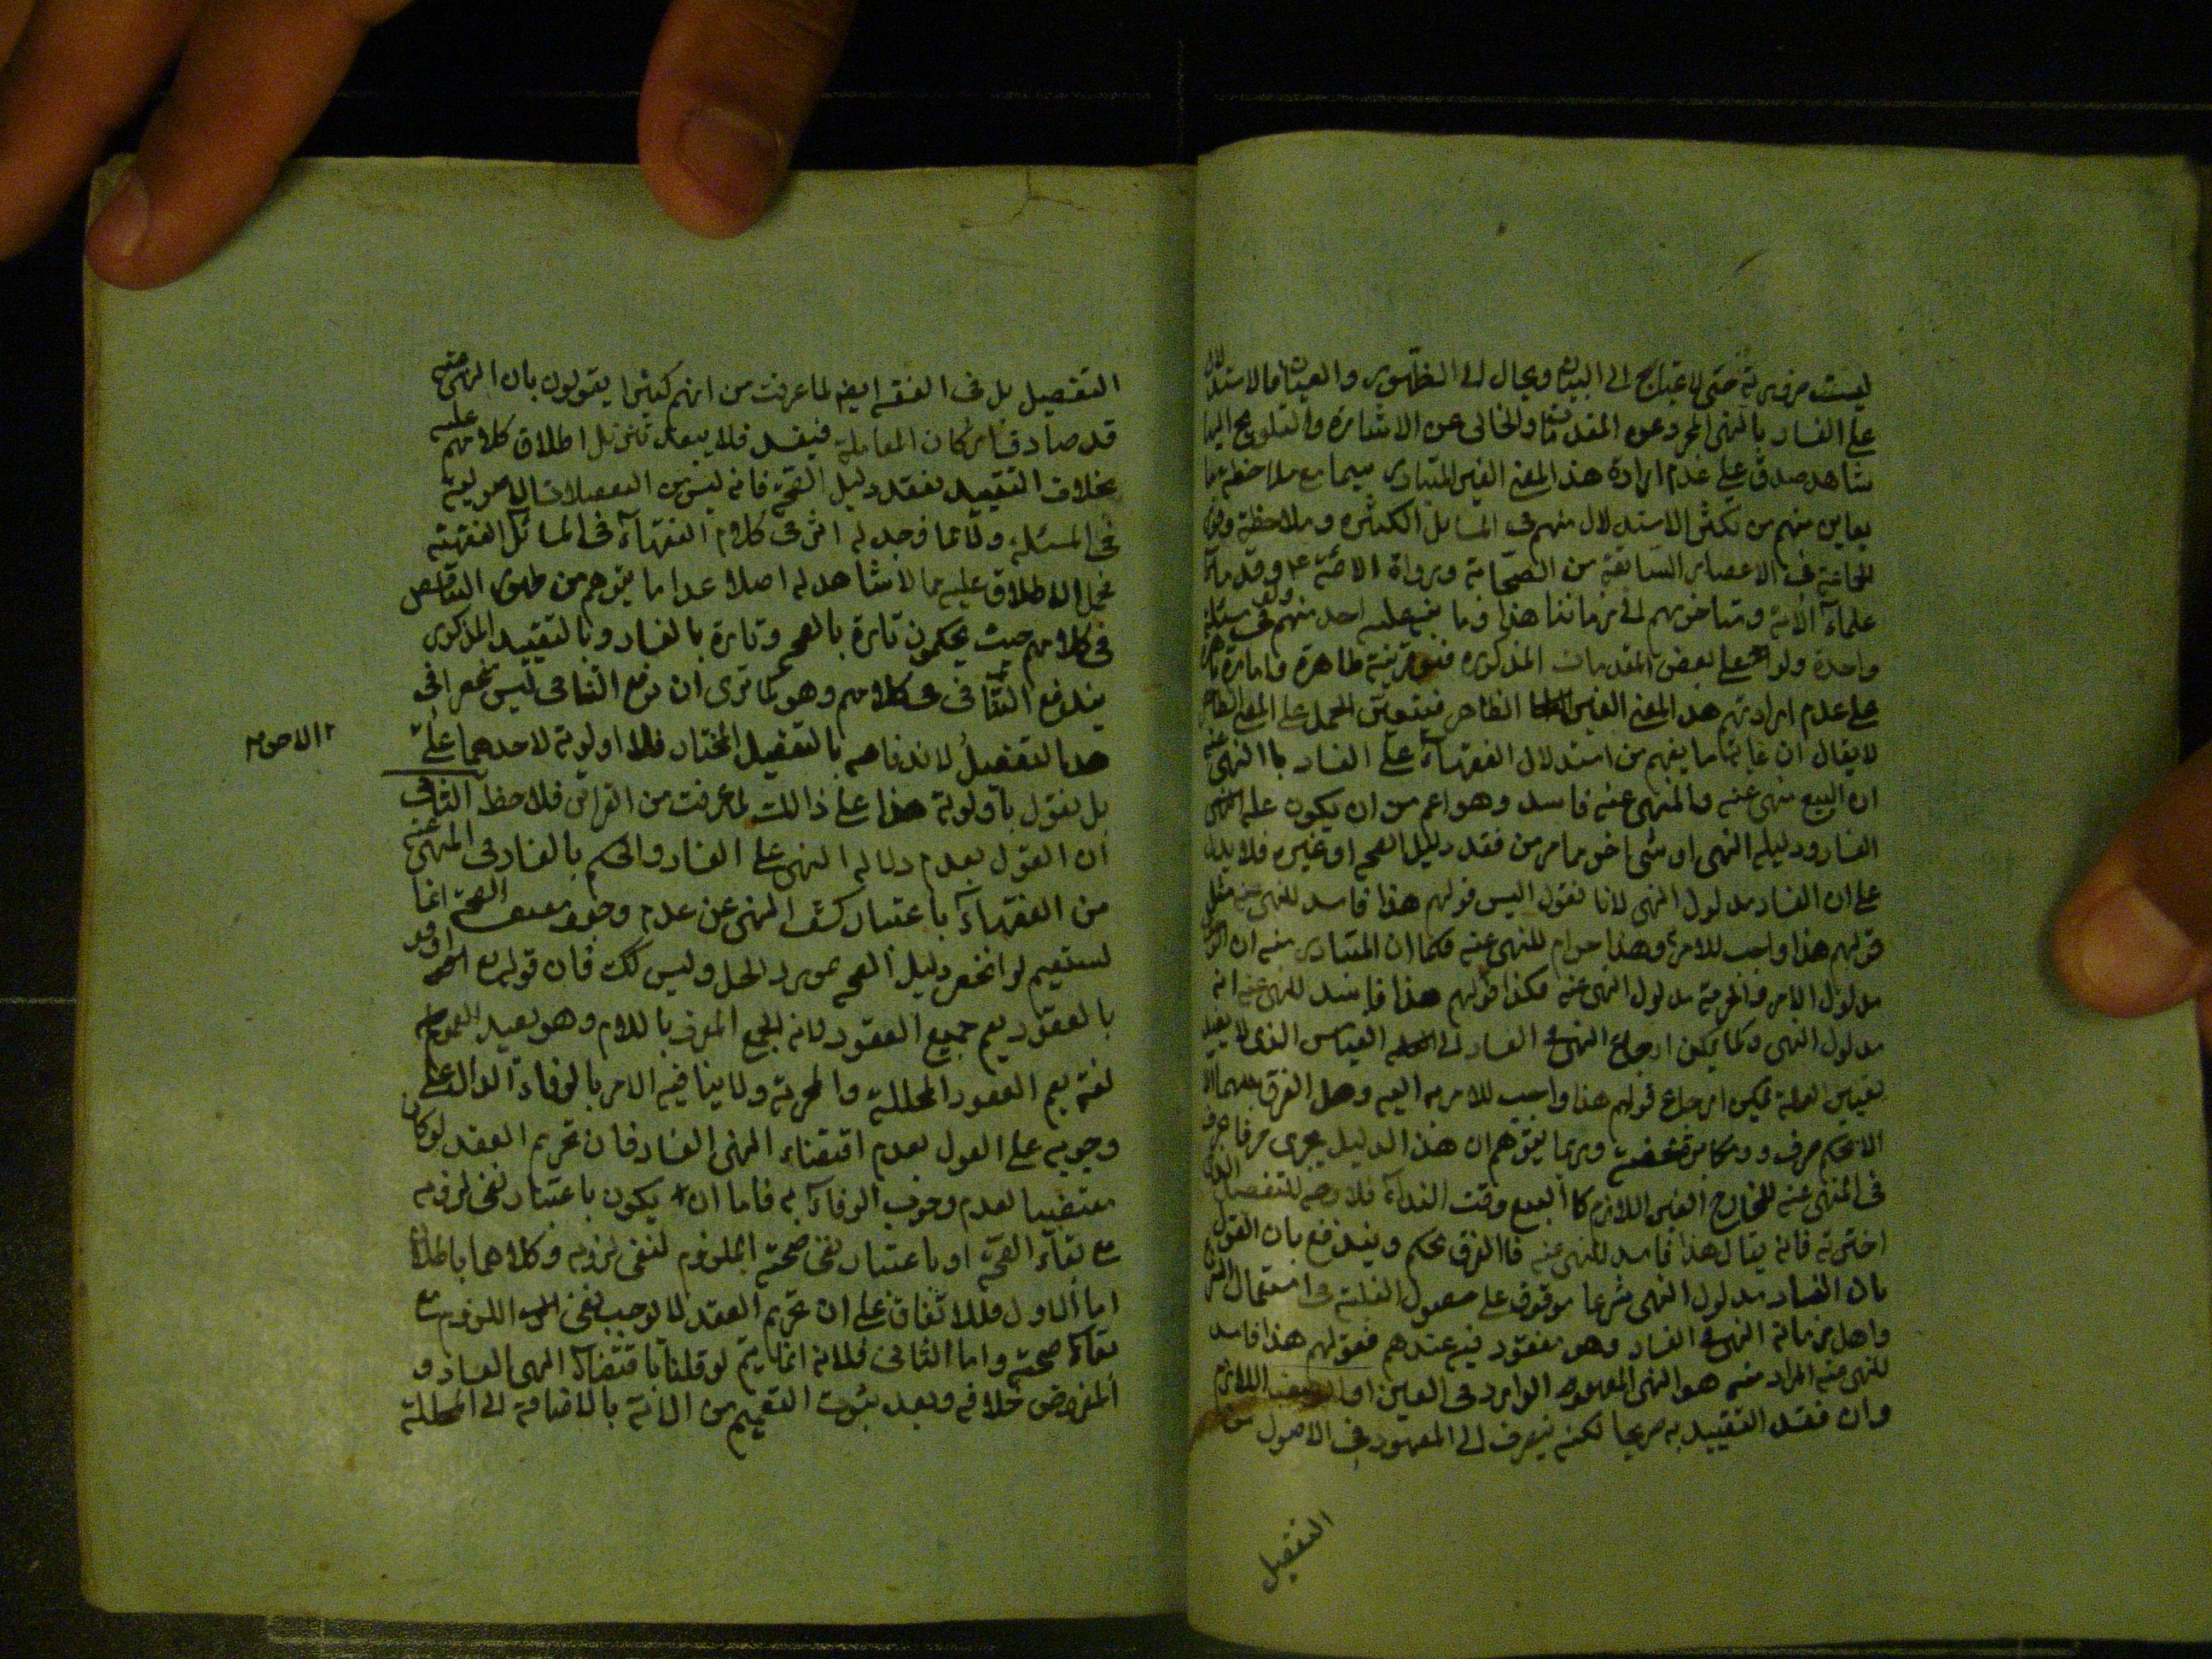 ليست ضرورية حتى لا يحتاج الى البيان ويحال الى الظهور والعيان اما الاستدلال
على الفساد بالنهى المجرد عن المقدمات والخالى عن الاشارة والتلويح اليها
شاهد صدق على عدم ارادة هذا المعنى الغير المتبادر سيما مع ملاحظة ما
يعاين منهم من تكثر الاستدلال منهم فى المسائل الكثيرة وملاحظة
فى الاعصار السابقة من الصحابة ورواة الائمة ع وقد
علماء الامة ومتاخريهم الى زماننا هذا وما عليه احد منهم فى مسئلة
واحدة ولو على بعض المقدمات المذكورة قرينة ظاهرة وامارة
على عدم ارادتهم هذا المعنى الغير الظاهر فيتعين الحمل على المعنى الظاهر
لا يقال ان غاية ما يفهم من استدلال الفقهاء على الفساد بالنهى
ان البيع منهى عنه والمنهى عنه فاسد وهو اعم من ان يكون علة
الفساد ودليله النهى او شئ اخر مما مر من فقد دليل الصحة او غيره فلا يدل
على ان الفساد مدلول النهى لانا نقول اليس قولهم هذا فاسد للنهى عنه مثل
قولهم هذا واجب للامر وهذا حرام للنهى عنه فكما ان المتبادر منه ان
مدلول الامر والحرمة مدلول النهى عنه فكذا قولهم هذا فاسد للنهى عنه انه
مدلول النهى وكما يمكن ارجاع النهى الفساد الى القياس الذى لا يفيد
تعيين العلة يمكن ارجاع قولهم هذا واجب للامر به اليه وهل الفرق بينهما الا
الا تحكم صرف ومكابرة وربما يتوهم ان هذا الدليل يجرى
فى المنهى عنه للخارج الغير اللازم كالبيع وقت النداء فلا وجه للتفصيل الذى
اخترته فانه يقال هذا فاسد للنهى عنه فالفرق تحكم ويندفع بان القول
بان الفساد مدلول النهى شرعا موقوف على حصول الغلبة فى استعمال
واهل زمانه النهى الفساد وهو مفقود فيه عندهم فقولهم هذا فاسد
للنهى عنه المراد منه هو النهى المعهود الوارد فى العين او اللازم
وان فقد التقييد به صريحا لكنه ينصرف الى المعهود فى الاصول من
التفصيل
التفصيل بل فى الفقه ايضا لما عرفت من انهم كثيرا يقولون بان النهى
قد صادف اركان المعاملة فيفسد فلا يبعد تنزيل اطلاق كلامهم عليه
بخلاف التقييد بفقد دليل الصحة فانه ليس من التفصيلات
فى المسئلة وقلما وجد له اثر فى كلام الفقهاء فى المسائل الفقهية
فحمل الاطلاق عليه مما لا شاهد له اصلا عدا ما يتوهم من ظهور التناقض
فى كلامهم حيث يحكمون تارة بالصحة وتارة بالفساد وبالتقييد المذكور
يندفع التنافى فى كلامهم وهو كما ترى ان دفع التنافى ليس منحصرا فى
هذا التفصيل لاندفاعه بالتفصيل المختار فلا اولوية لاحدهما على
الاخر
بل نقول باولوية هذا على ذالك لما عرفت من القرائن فلاحظ الثانى
ان القول بعدم دلالة النهى على الفساد والحكم بالفساد فى المنهى عنه
من الفقهاء باعتبار كشف النهى عن عدم وجود الصحة انما
يستقيم لو انحصر دليل الصحة بمورد الحل وليس كك فان قوله تع اوفوا
بالعقود يعم جميع العقود لانه الجمع المعرف باللام وهو يفيد العموم
لغة يعم العقود المحللة والمحرمة ولا ينافيه الامر بالوفاء الدال على
وجوبه على القول بعدم اقتضاء النهى الفساد فان تحريم العقد لو كان
مقتضيا لعدم وجوب الوفاء به فاما ان يكون باعتبار نفى لزومه
مع بقاء الصحة او باعتبار نفى صحته الملزوم لنفى لزومه وكلاهما باطلان
اما الاول فللاتفاق على ان تحريم العقد لا يوجب نفى اللزوم مع
بقاء صحته واما الثانى فلانه انما يتم لو قلنا باقتضاء النهى الفساد و
المفروض خلافه وبعد ثبوت التعميم من الاية بالاضافة الى المحللة